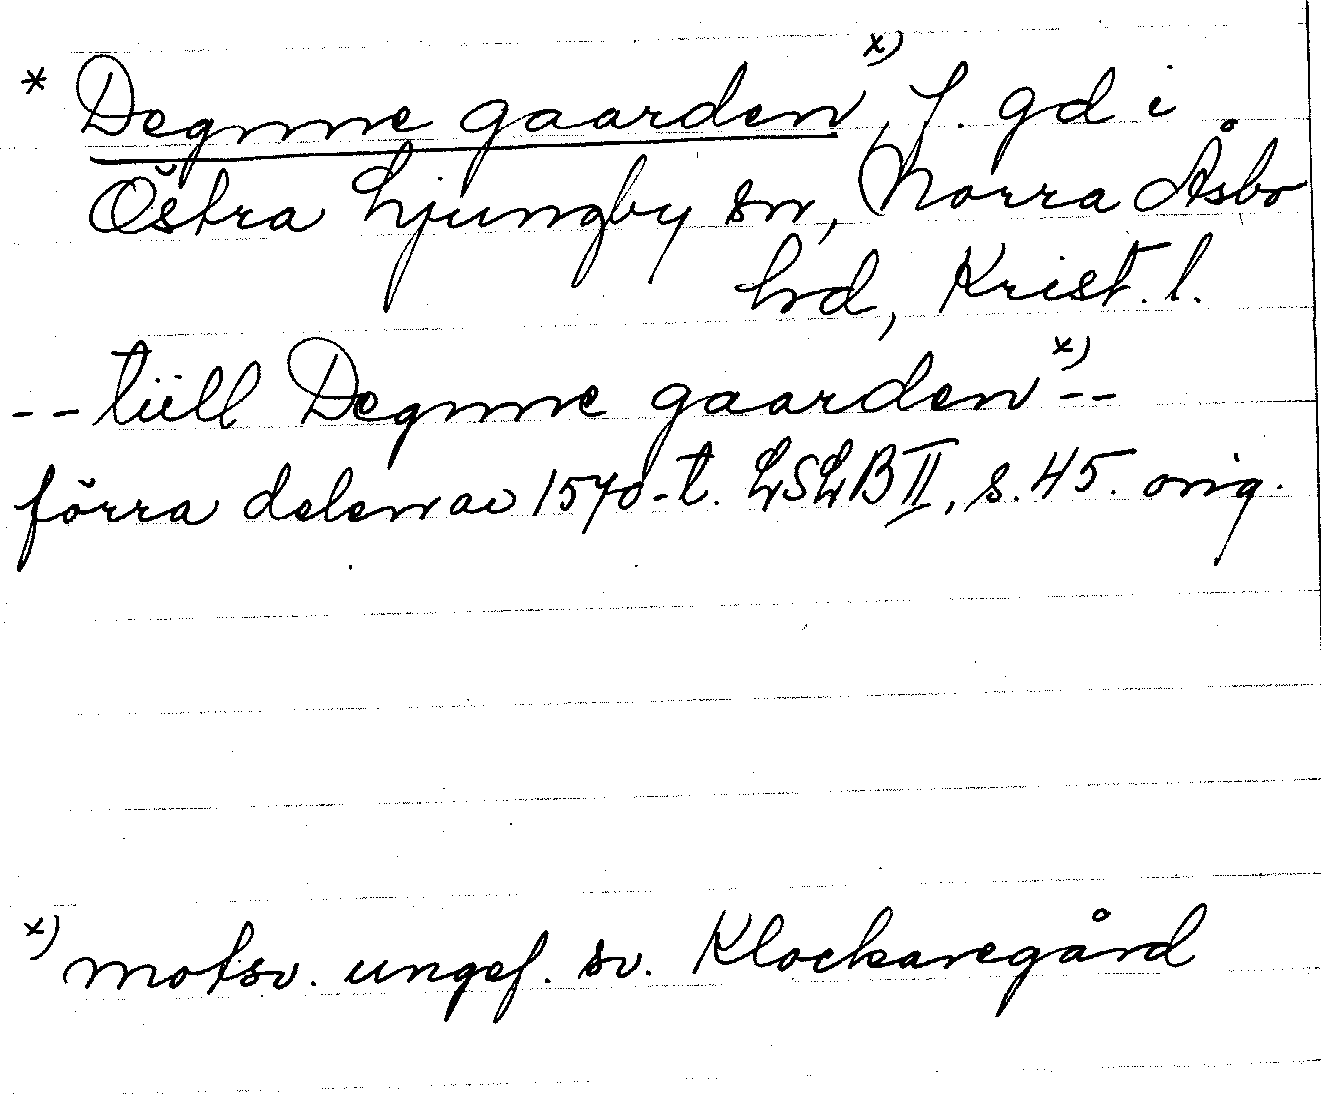 * Degnne gaarden x), f. gd i
Östra Ljungby sn, Norra Åsbo
hd, Krist. l.
-- tiill Degnne gaarden x) --
förra delen av 1570-t. LSLB II, s. 45. orig.
x) motsv. ungef. sv. Klockaregård